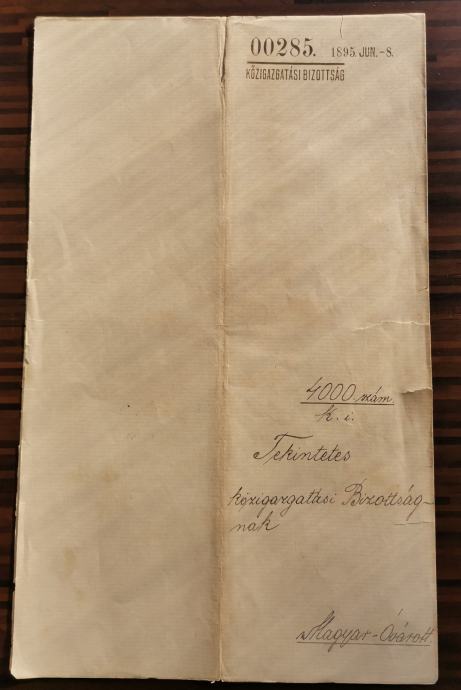 00285. 1895. JUN. -8.
KÖZIGAZGATÁSI BIZOTTSÁG
4000 szám
k. i.
Tekintetes
közigazgatási Bizottság-
nak
Magyar-Óvárott.